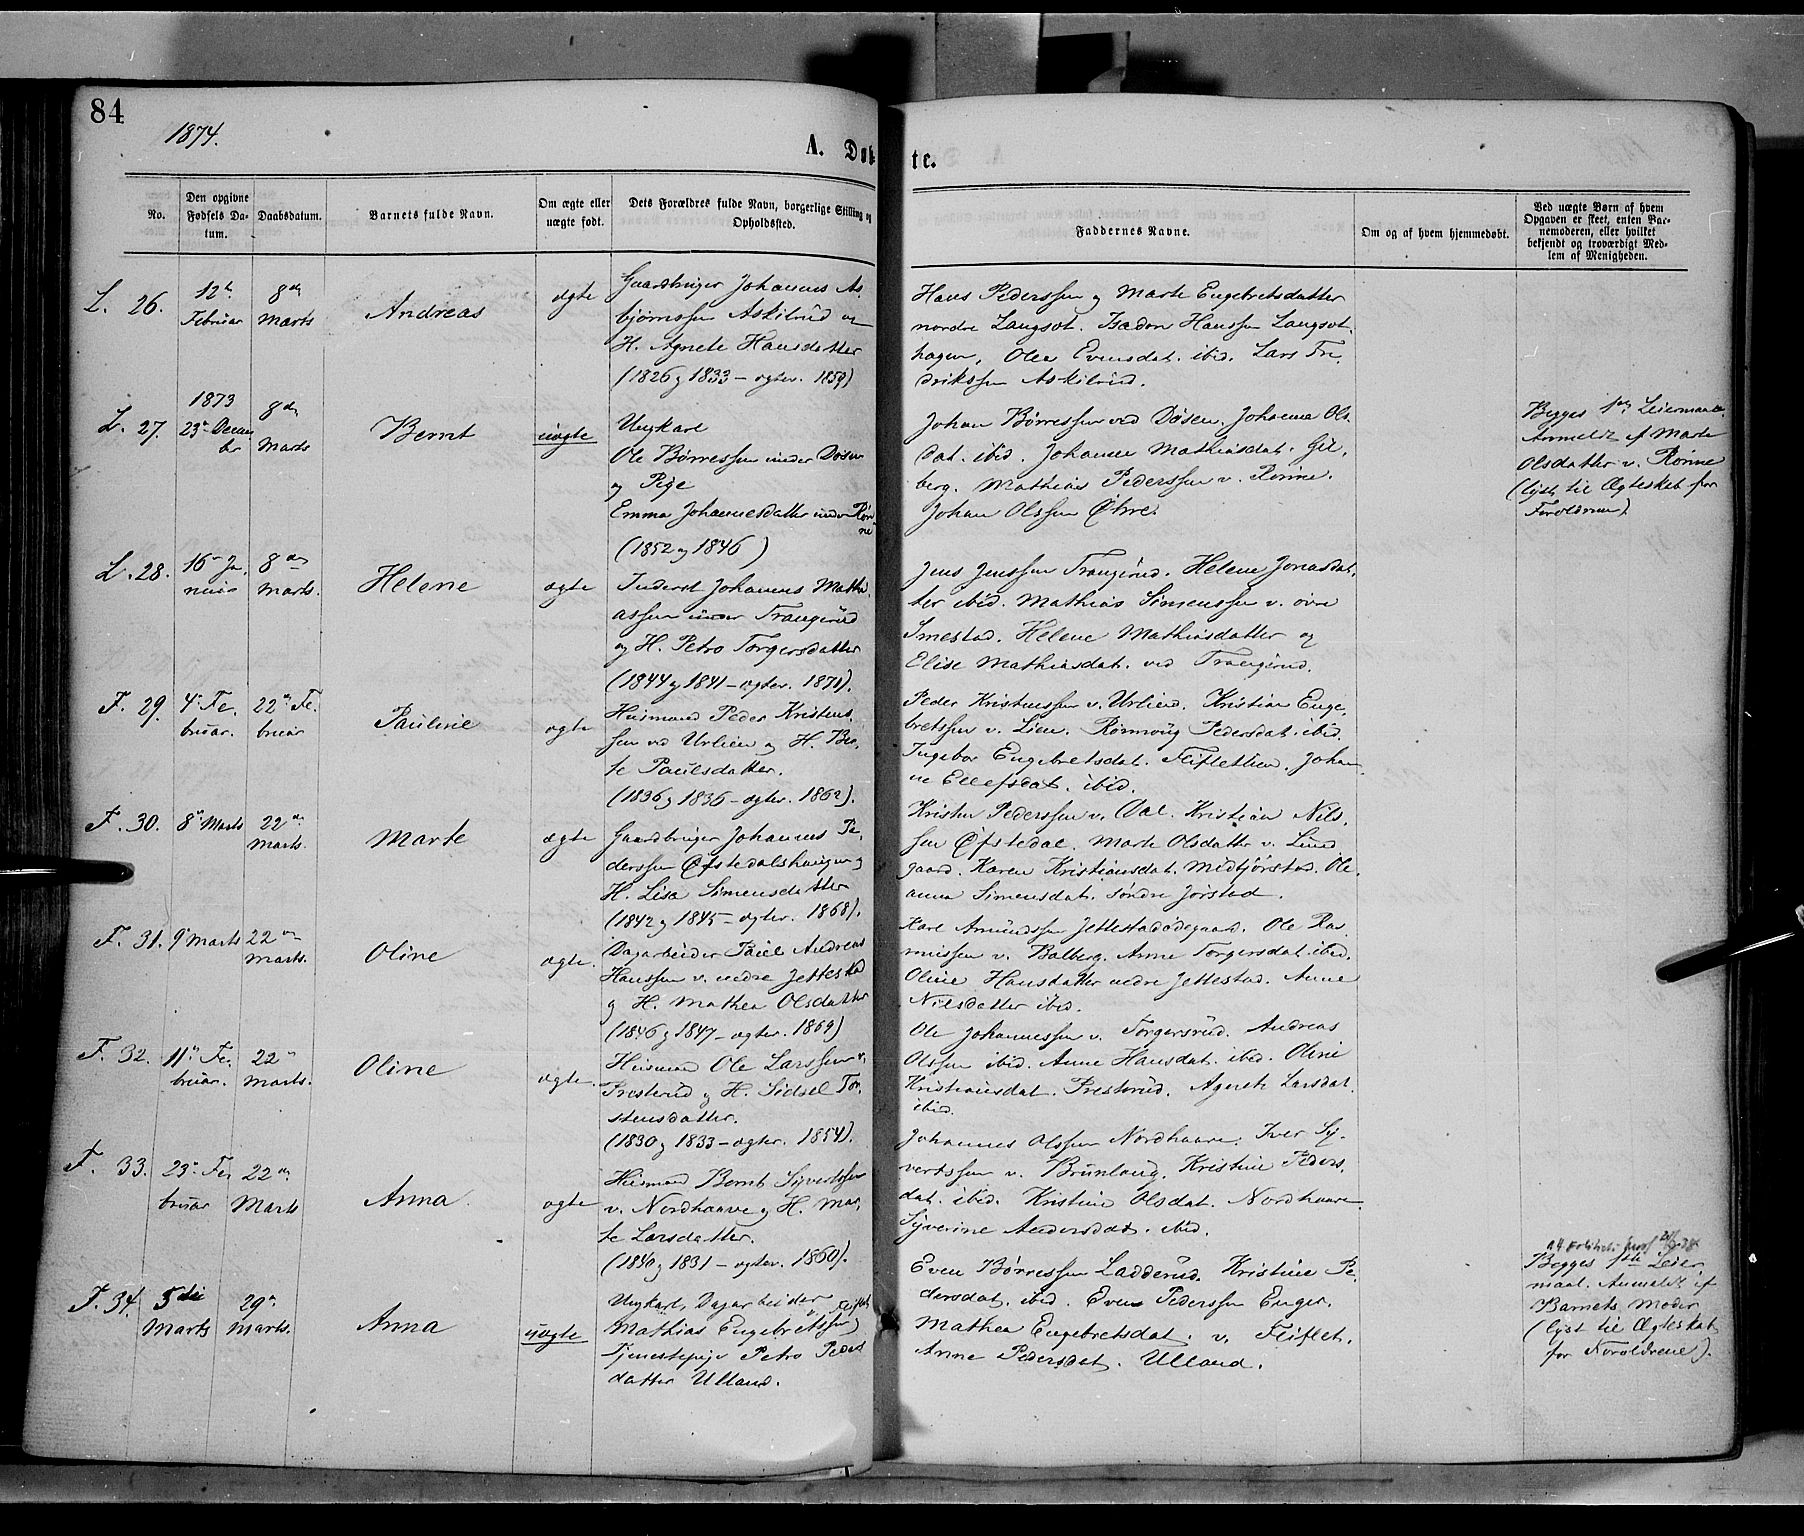 84
1874.
A. Døb
te.
No.
Den opgivne
Fødsels Da-
tum.
Daabsdatum.
Barnets fulde Navn.
Om ægte eller
uægte født.
Dets Forældres fulde Navn, borgerlige Stilling og
Opholdssted.
Faddernes Navne.
Om og af hvem hjemmedøbt.
Ved uægte Børn af hvem
Opgaven er skeet, enten Bar-
nemoderen, eller hvilket
bekjendt og troværdigt Med-
lem af Menigheden.
L. 26.
12te
Februar
8de
Marts
Andreas
ægte
Gaardbruger Johannes As-
bjørnssen Askilrud og
H. Agnete Hansdatter
(1826 og 1833 – ægtev. 1859)
Hans Pederssen og Marte Engebretsdatter
nordre Langset. Hanssen Langset
hagen, Olea Evensdat. ibid. Lars Fre,
drikssen Askilrud.
L. 27.
1873
23de Decem
br
8de
Marts
Bernt
uægte
Ungkarl
Ole Børressen under Døsen
og Pige
Emma Johannesdatter under Røn
ne
(1852 og 1846)
Johan Børressen ved Døsen. Johanne Ols
dat. ibid. Johanne Mathiasdat. Gil,
berg. Mathias Pederssen v. Rønne.
Johan Olssen Øhre.
Begges 1ste Leiermaal.
Anmeldt af Marte
Olsdatter v. Rønne
(lyst til Ægteskab for
Forældrene).
L. 28.
16de Ja,
nuar
8de
Marts.
Helene
ægte
Inderst Johannes Mathi,
assen under Trangrud
og H. Petra Torgersdatter
(1844 og 1841 – ægtev. 1871).
Jens Jenssen Trangrud. Helene Jonasdat,
ter ibid. Mathias Simenssen v. øvre
Smestad. Helene Mathiasdatter og
Elise Mathiasdat. ved Trangrud.
F. 29.
4de Fe,
bruar.
22de Fe.
bruar
Pauline
ægte
Husmand Peder Kristens,
sen ved Urlien og H. Ber,
te Paulsdatter.
(1836 og 1836 – ægtev. 1862).
Peder Kristenssen v. Urlien. Kristian Enge,
bretssen v. Lien. Rønnoug Pedersdat. ibid.
Ingebor Engebretsdat. Flifletlien. Johan,
ne Ellefsdat. ibid.
F. 30.
8de Marts
22de
Marts.
Marte
ægte
Gaardbruger Johannes Pe,
derssen Øfstedalshaugen og
H. Lisa Simensdatter
(1842 og 1845 – ægtev. 1868).
Kristen Pederssen v. Dal. Kristian Nils,
sen Øfstedal. Marte Olsdatter v. Lund
gaard. Karen Kristiansdat. Midtjørstad. Ole,
anna Simensdat. søndre Jørstad.
F. 31.
9de Marts
22de
Marts.
Oline
ægte.
Dagarbeider Paul Andreas
Hanssen v. nedre Jettestad
og H. Mathea Olsdatter
(1846 og 1847 – ægtev. 1869)
Karl Amundssen Jettestadødegaard. Ole Ras
mussen v. Balberg. Anne Torgersdat. ibid.
Oline Hansdatter nedre Jettestad. Anne
Nilsdatter ibid.
F. 32.
11de Fe.
bruar.
22de
Marts.
Oline
ægte.
Husmand Ole Larssen v.
Presterud og H. Sidsel Tor,
stensdatter.
(1830 og 1833 – ægtev. 1854).
Ole Johannessen v. Torgersrud. Andreas
Olssen ibid. Anne Hansdat. ibid. Oline
Kristiansdat. Presterud. Agnete Larsdat.
ibid.
F. 33.
23de Fe,
bruar
22de
Marts
Anna
ægte
Husmand Bernt Syvertssen
v. Nordhaave og H. Mar,
te Larsdatter.
(1840 og 1831 – ægtev. 1860).
Johannes Olssen Nordhaave. Iver Sy,
vertssen v. Brunlaug. Kristine Peders,
dat. ibid. Kristine Olsdat. Nordhaave
Syverine Andersdat. ibid.
F. 34.
5te
Marts
29de
Marts.
Anna
uægte
Ungkarl, Dagarbeider
Mathias Engebretssen v. Fliflet og
Tjenestepige Petra Peders
datter Ulland.
Even Børressen Ladderud. Kristine Pe
dersdat. ibid. Even Pederssen Enger.
Mathea Engebretsdat. v. Fliflet.
Anne Pedersdat. Ulland.
Begges 1ste Leier
maal. Anmeldt af
Barnets Moder
(lyst til Ægteskab
for Forældrene).